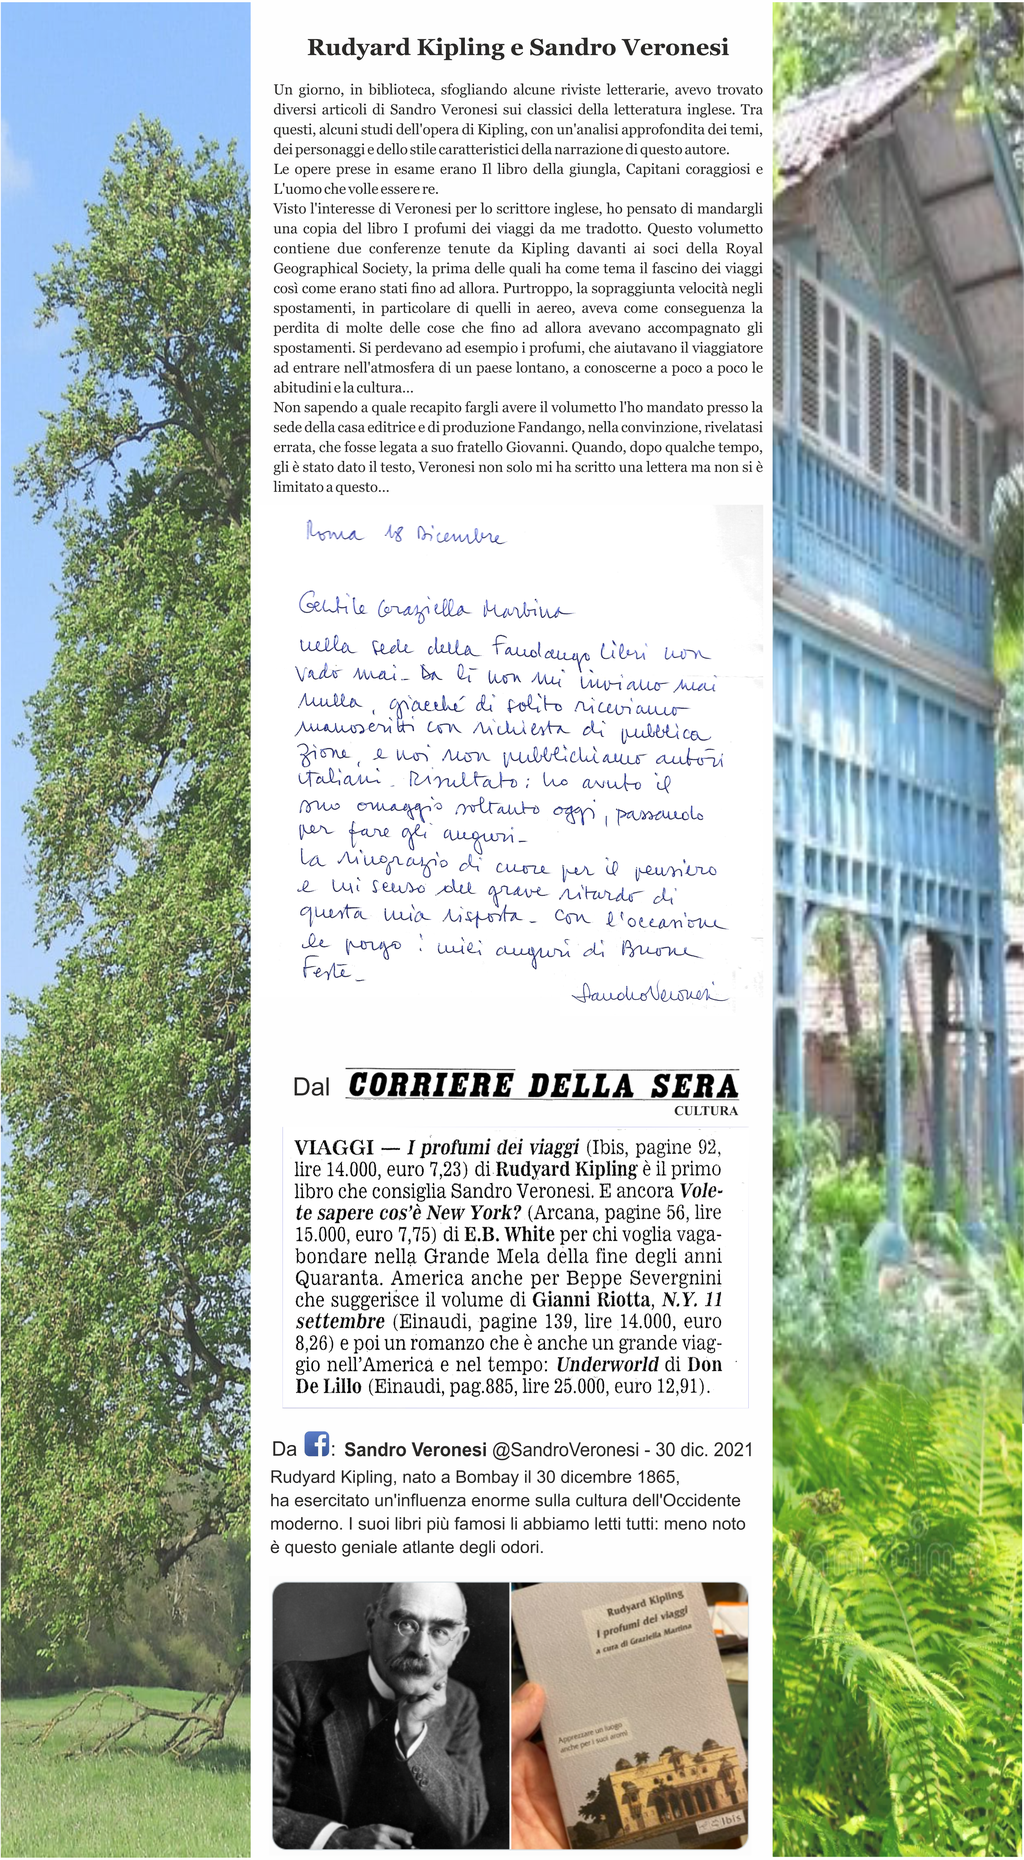 Rudyard Kipling e Sandro Veronesi
Un giorno, in biblioteca, sfogliando alcune riviste letterarie, avevo trovato
diversi articoli di Sandro Veronesi sui classici della letteratura inglese. Tra
questi, alcuni studi dell'opera di Kipling, con un'analisi approfondita dei temi,
dei personaggi e dello stile caratteristici della narrazione di questo autore.
Le opere prese in esame erano Il libro della giungla, Capitani coraggiosi e
L'uomo che volle essere re.
Visto l'interesse di Veronesi per lo scrittore inglese, ho pensato di mandargli
una copia del libro I profumi dei viaggi da me tradotto. Questo volumetto
contiene due conferenze tenute da Kipling davanti ai soci della Royal
Geographical Society, la prima delle quali ha come tema il fascino dei viaggi
così come erano stati fino ad allora. Purtroppo, la sopraggiunta velocità negli
spostamenti, in particolare di quelli in aereo, aveva come conseguenza la
perdita di molte delle cose che fino ad allora avevano accompagnato gli
spostamenti. Si perdevano ad esempio i profumi, che aiutavano il viaggiatore
ad entrare nell'atmosfera di un paese lontano, a conoscerne a poco a poco le
abitudini e la cultura...
Non sapendo a quale recapito fargli avere il volumetto l'ho mandato presso la
sede della casa editrice e di produzione Fandango, nella convinzione, rivelatasi
errata, che fosse legata a suo fratello Giovanni. Quando, dopo qualche tempo,
gli è stato dato il testo, Veronesi non solo mi ha scritto una lettera ma non si è
limitato a questo...
Roma 18 Dicembre
Gentile Graziella Martina
nella sede della Fandango Libri non
vado mai - Da lì non mi inviano mai
nulla, giacché di solito riceviamo
manoscritti con richiesta di pubblica
zione, e noi non pubblichiamo autori
italiani - Risultato: ho avuto il
suo omaggio soltanto oggi, passando
per fare gli auguri -
La ringrazio di cuore per il pensiero
e mi scuso del grave ritardo di
questa mia risposta - Con l'occasione
le porgo i miei auguri di Buone
Feste -
Sandro Veronesi
Dal CORRIERE DELLA SERA
CULTURA
VIAGGI — I profumi dei viaggi (Ibis, pagine 92,
lire 14.000, euro 7,23) di Rudyard Kipling è il primo
libro che consiglia Sandro Veronesi. E ancora Vole-
te sapere cos'è New York? (Arcana, pagine 56, lire
15.000, euro 7,75) di E.B. White per chi voglia vaga-
bondare nella Grande Mela della fine degli anni
Quaranta. America anche per Beppe Severgnini
che suggerisce il volume di Gianni Riotta, N.Y. 11
settembre (Einaudi, pagine 139, lire 14.000, euro
8,26) e poi un romanzo che è anche un grande viag-
gio nell'America e nel tempo: Underworld di Don
De Lillo (Einaudi, pag.885, lire 25.000, euro 12,91).
Da f: Sandro Veronesi @SandroVeronesi - 30 dic. 2021
Rudyard Kipling, nato a Bombay il 30 dicembre 1865,
ha esercitato un'influenza enorme sulla cultura dell'Occidente
moderno. I suoi libri più famosi li abbiamo letti tutti: meno noto
è questo geniale atlante degli odori.
Rudyard Kipling
I profumi dei viaggi
a cura di Graziella Martina
Apprezzare un luogo
anche per i suoi aromi
Ibis